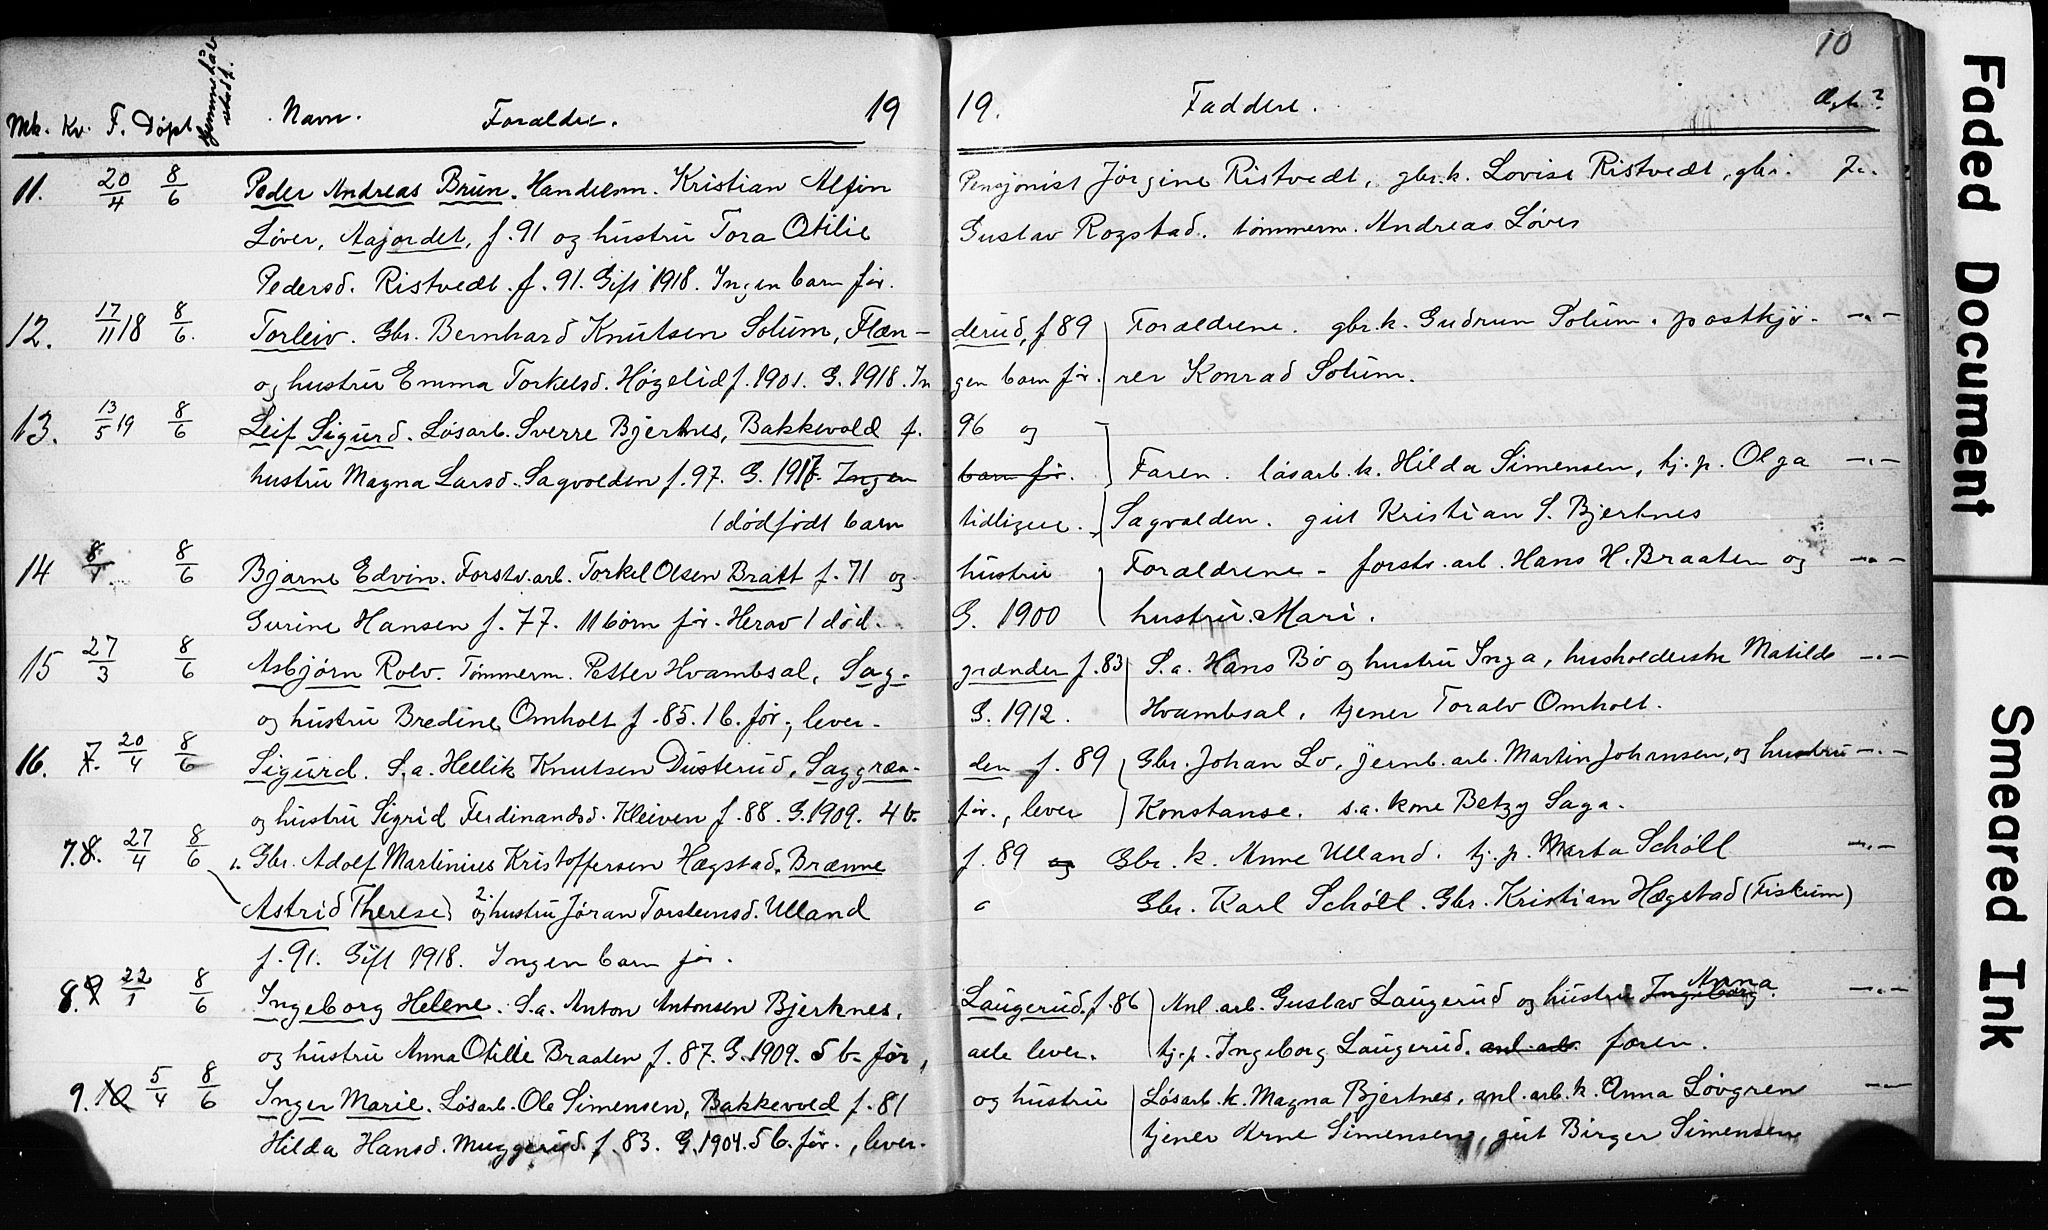 10
Mk. Kv. F. Døpt Hjemmedåb stadf. Navn. Forældre. 19
19. Faddere. Ægte?
11. 20/4 8/6 Peder Andreas Brun. Handelsm. Kristian Alfin
Løver, Aajordet, f. 91 og hustru Tora Otilie
Pedersd. Ristvedt. f. 91. Gift 1918. Ingen barn før.
Pensjonist Jørgine Ristvedt, gbr.k. Lovise Ristvedt, gbr.
Gustav Rogstad. tømmerm. Andreas Løver
12. 17/11 18 8/6. Torleiv. Gbr. Bernhard Knutsen Solum, Flæn-
derud, f 89 Forældrene. gbr.k. Gudrun Solum. postkjø- -"-
og hustru Emma Torkelsd. Høgelid f. 1901. G. 1918. In
gen barn før. rer Konrad Solum.
13. 13/5 19 8/6 Leif Sigurd. Løsarb. Sverre Bjerknes, Bakkevold f.
96 og
hustru Magna Larsd. Sagvolden f. 97. G. 1917. Ingen
barn før. Faren. løsarb.k. Hilda Simensen, tj.p. Olga -"-
1 dødfødt barn
tidligere. Sagvolden. gut Kristian S. Bjerknes
14 8/1. 8/6 Bjarne Edvin. Forstv.arb. Torkel Olsen Bratt f. 71 og
hustru Forældrene - forstv.arb. Hans H. Braaten og -"-
Gurine Hansen f. 77. 11 børn før. Herav 1 død.
G. 1900 hustru Mari.
15 27/3 8/6 Asbjørn Rolv. Tømmerm. Petter Hvambsal, Sag-
grænden f. 83 S.a. Hans Bø og hustru Inga, husholderske Matilde -"-
og hustru Bredine Omholt f. 85. 1 b. før, lever.
G. 1912. Hvambsal, tjener Toralv Omholt.
16. 7. 20/4 8/6 Sigurd. S.a. Hellik Knutsen Dusterud, Saggræn-
den f. 89 Gbr. Johan Lo, jernb.arb. Martin Johansen, og hustru -"-
og hustru Sigrid Ferdinandsd. Kleiven f. 88. G. 1909. 4 b.
før., lever Konstanse. s.a. kone Betzy Saga.
7. 8. 27/4 8/6 1. Gbr. Adolf Martinius Kristoffersen Hægstad, Brænne
f. 89 og Gbr. k. Anne Ulland. tj.p. Marta Schöll -"-
Astrid Therese, 2. og hustru Jøran Torstensd. Ulland
Gbr. Karl Schöll. Gbr. Kristian Hægstad (Fiskum)
f. 91. Gift 1918. Ingen barn før.
8. 9 22/1 8/6 Ingeborg Helene. S.a. Anton Antonsen Bjerknes,
Laugerud. f. 86 Anl.arb. Gustav Laugerud og hustru Ingeborg Anna. -"-
og hustru Anna Otilie Braaten f. 87. G. 1909. 5 b. før,
alle lever. tj.p. Ingeborg Laugerud. anl.arb. faren.
9. 10 5/4 8/6 Inger Marie. Løsarb. Ole Simensen, Bakkevold f. 81
og hustru Løsarb.k. Magna Bjerknes, anl.arb.k. Anna Løvgren -"-
Hilda Hansd. Muggerud. f. 83. G. 1904. 5 b. før., lever.
tjener Arne Simensen, gut Birger Simensen
Faded Document
Smeared Ink